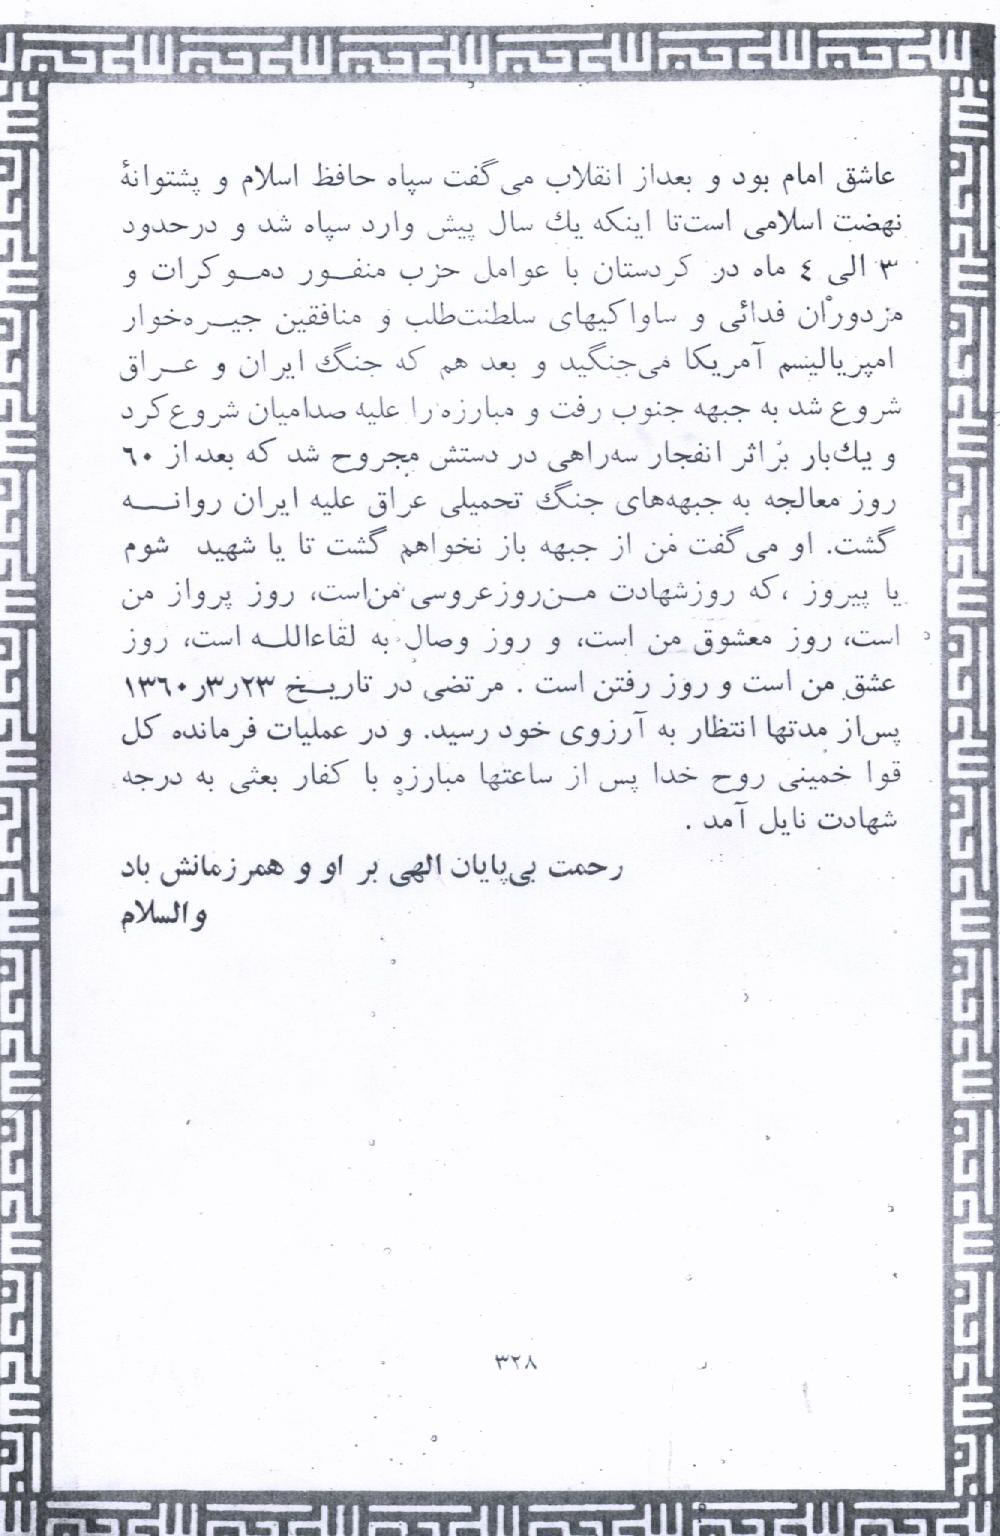 عاشق امام بود و بعداز انقلاب می‌گفت سپاه حافظ اسلام و پشتوانهٔ
نهضت اسلامی است‌تا اینکه یك سال پیش وارد سپاه شد و درحدود
۳ الی ٤ ماه در کردستان با عوامل حزب منفــور دمــوکرات و
مزدوران فدائی و ساواکیهای سلطنت‌طلب و منافقین جیــره‌خوار
امپریالیسم آمریکا می‌جنگید و بعد هم که جنگ ایران و عــراق
شروع شد به جبهه جنوب رفت و مبارزه را علیه صدامیان شروع‌کرد
و یك‌بار براثر انفجار سه‌راهی در دستش مجروح شد که بعداز ٦٠
روز معالجه به جبهه‌های جنگ تحمیلی عراق علیه ایران روانـــه
گشت. او می‌گفت من از جبهه باز نخواهم گشت تا یا شهید شوم
یا پیروز ، که روزشهادت مــن‌روزعروسی من‌است، روز پرواز من
است، روز معشوق من است، و روز وصال به لقاءاللــه است، روز
عشق من است و روز رفتن است . مرتضی در تاریــخ ۲۳ر۳ر۱۳٦۰
پس‌از مدتها انتظار به آرزوی خود رسید. و در عملیات فرمانده کل
قوا خمینی روح خدا پس از ساعتها مبارزه با کفار بعثی به درجه
شهادت نایل آمد .
رحمت بی‌پایان الهی بر او و همرزمانش باد
والسلام
۳۲۸